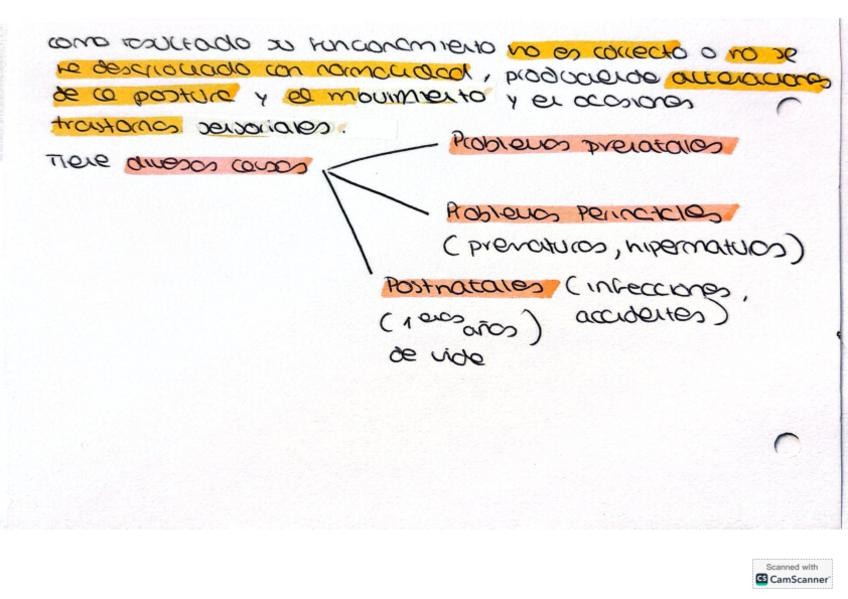 como resultado su funcionamiento no es correcto o no se
ha desarrollado con normalidad, produciendo alteraciones
de la postura y el movimiento y en ocasiones
trastornos sensoriales.
Tiene diversas causas
Problemas prenatales
Problemas Perinatales
(prematuros, hipermaturos)
Postnatales (infecciones,
(1eros años) accidentes)
de vida
Scanned with
CS CamScanner